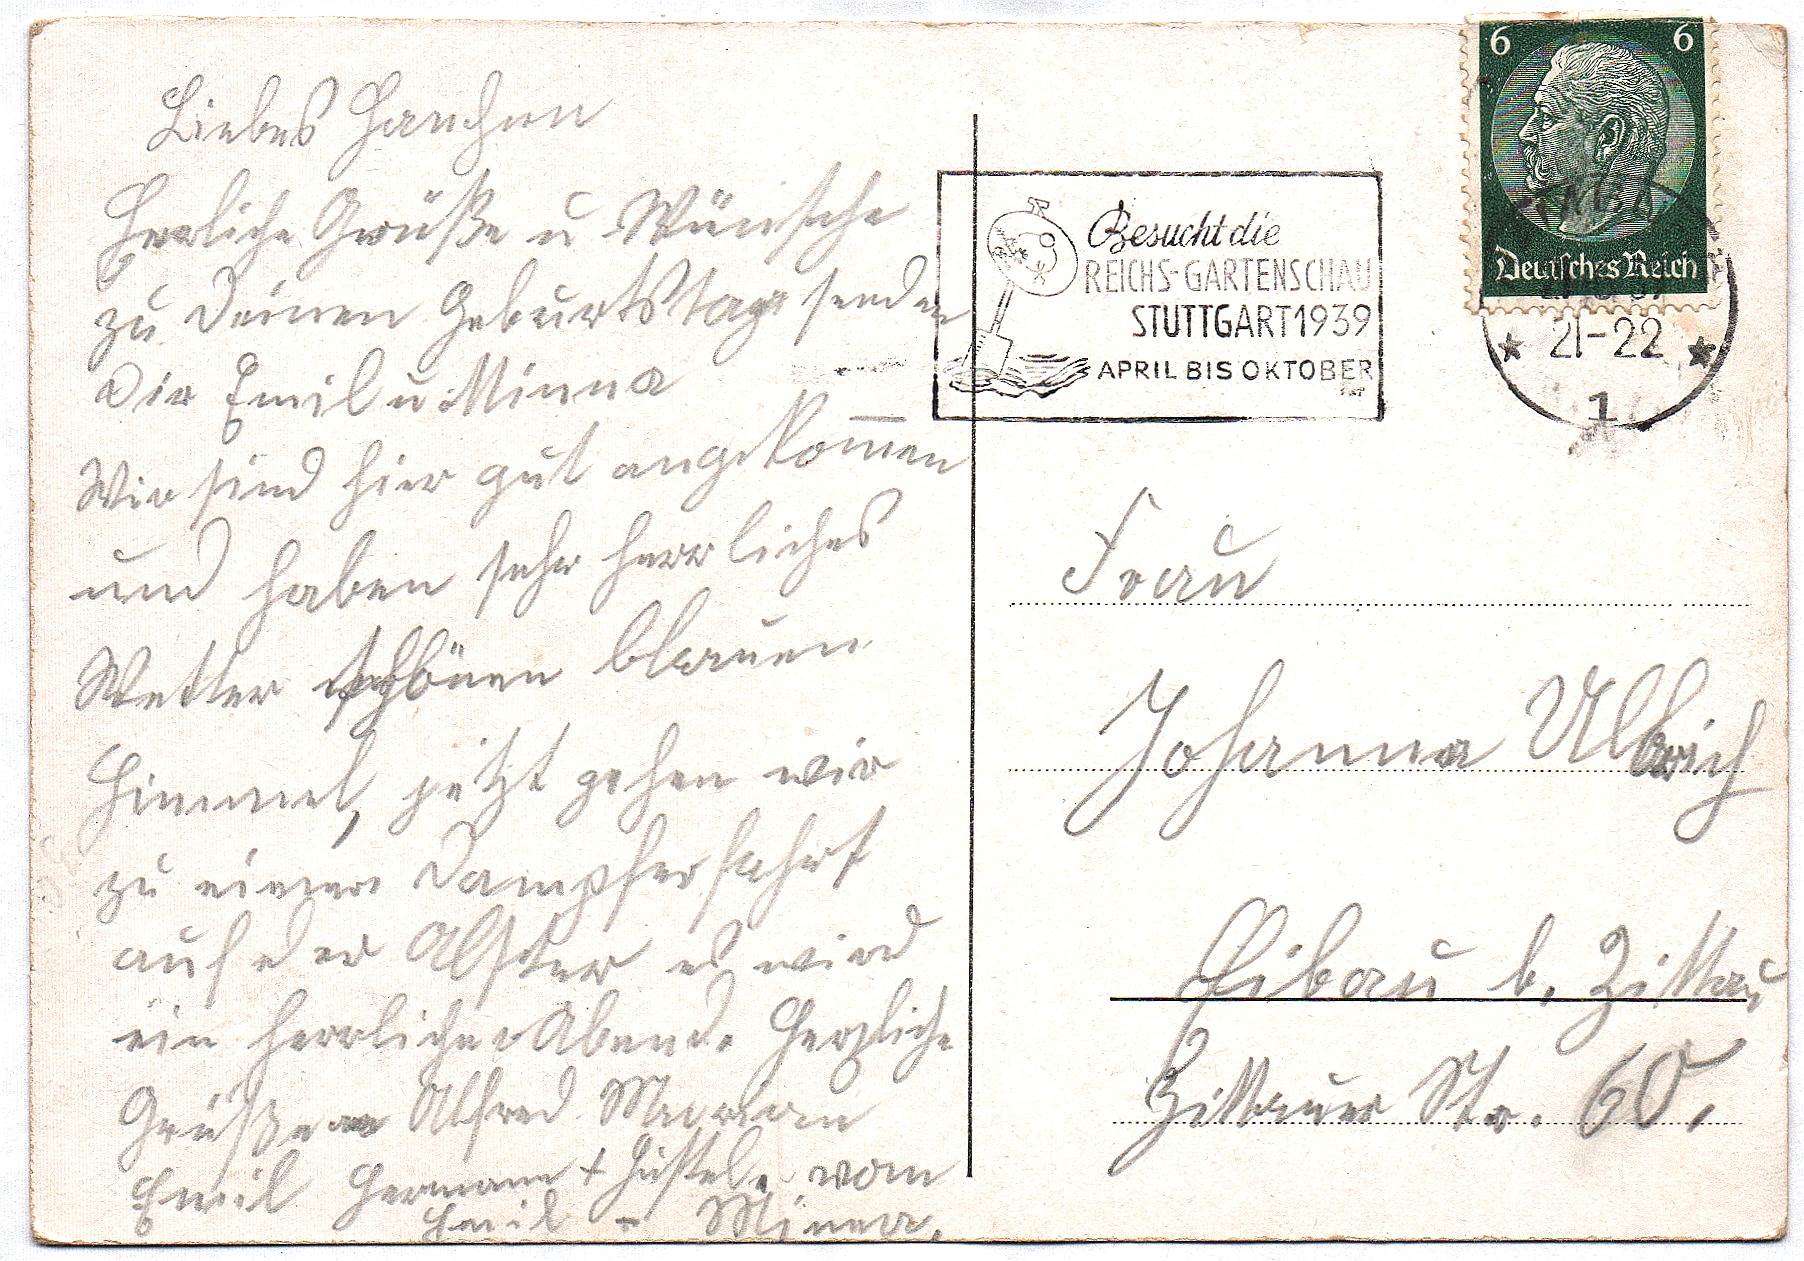 Liebes Hanchen
Herliche Grüße u. Wünsche
zu Deinen Geburtstage senden
Dir Emil u Minna
Wir sind hier gut angekom̅en
und haben sehr herrliches
Wetter schönen blauen
Himmel, jetzt gehen wir
zu einer Dampferfahrt
auf der Alster es wird
ein herrlicher Abend. Herzliche
Grüße an Alfred
Emil Hermann + Gustel. von
Emil - Minna.
6 6
Deutsches Reich
Besucht die
REICHS-GARTENSCHAU
STUTTGART 1939
APRIL BIS OKTOBER
21-22
1
Frau
Johanna Ulbrich
Eibau b. Zittau
Zittauer Str. 60.